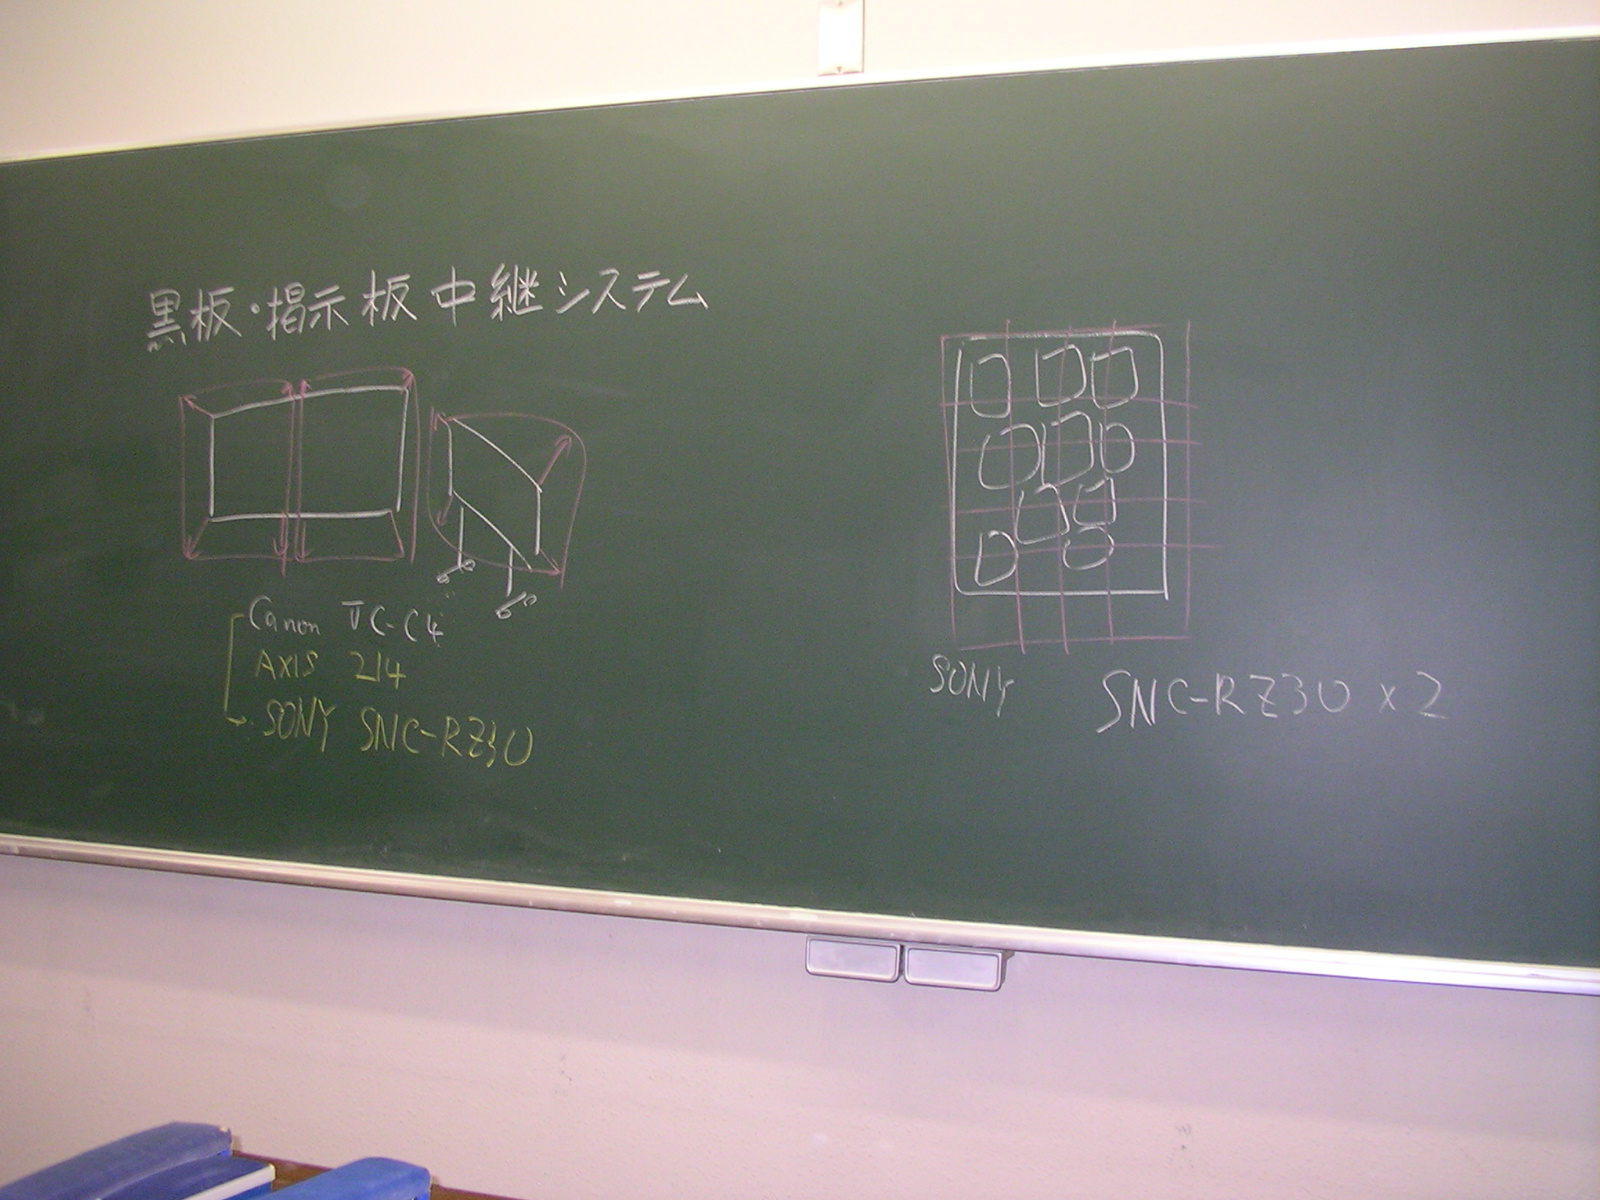 黒板・掲示板中継システム
Canon VC-C4
AXIS 214
SONY SNC-RZ30
SONY SNC-RZ30 x 2